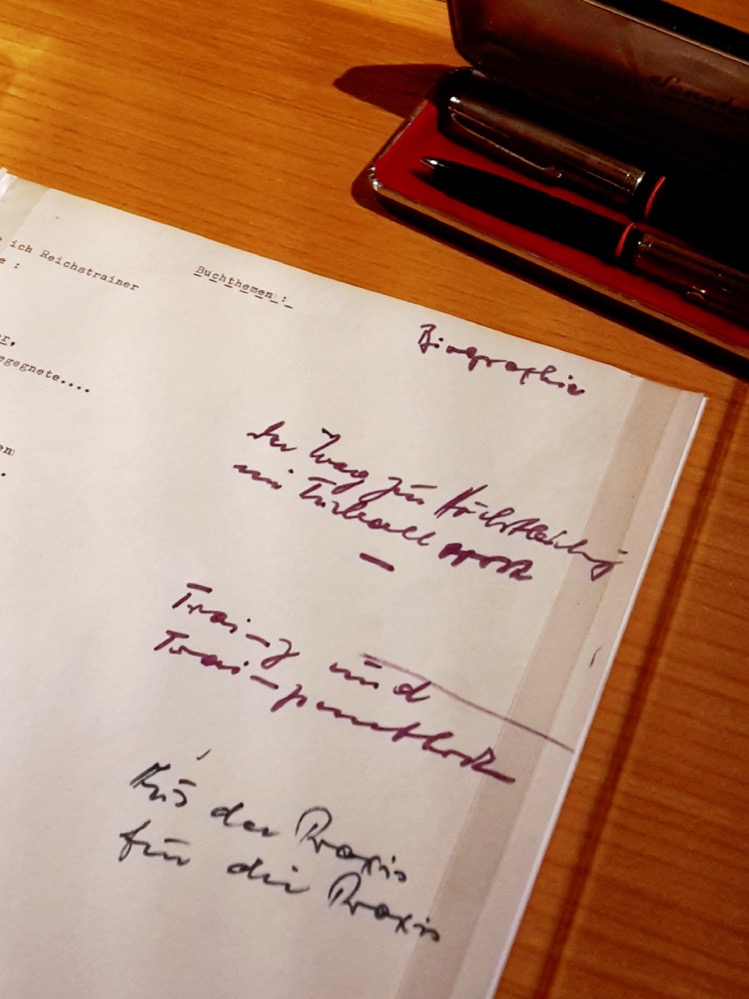 ich Reichstrainer
e :
r,
egegnete....
en
.
Buchthemen:
Biographie
Der Weg zur Höchstleistung
im Fußball
Training und
Trainingsmethodik
Aus der Praxis
für die Praxis